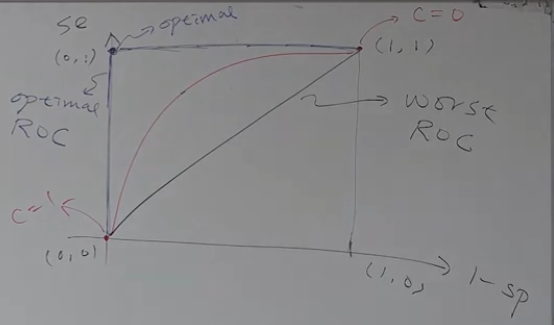 se
optimal
C=0
(0,1)
(1,1)
optimal
ROC
worst
ROC
C=1
(0,0)
(1,0)
1-sp